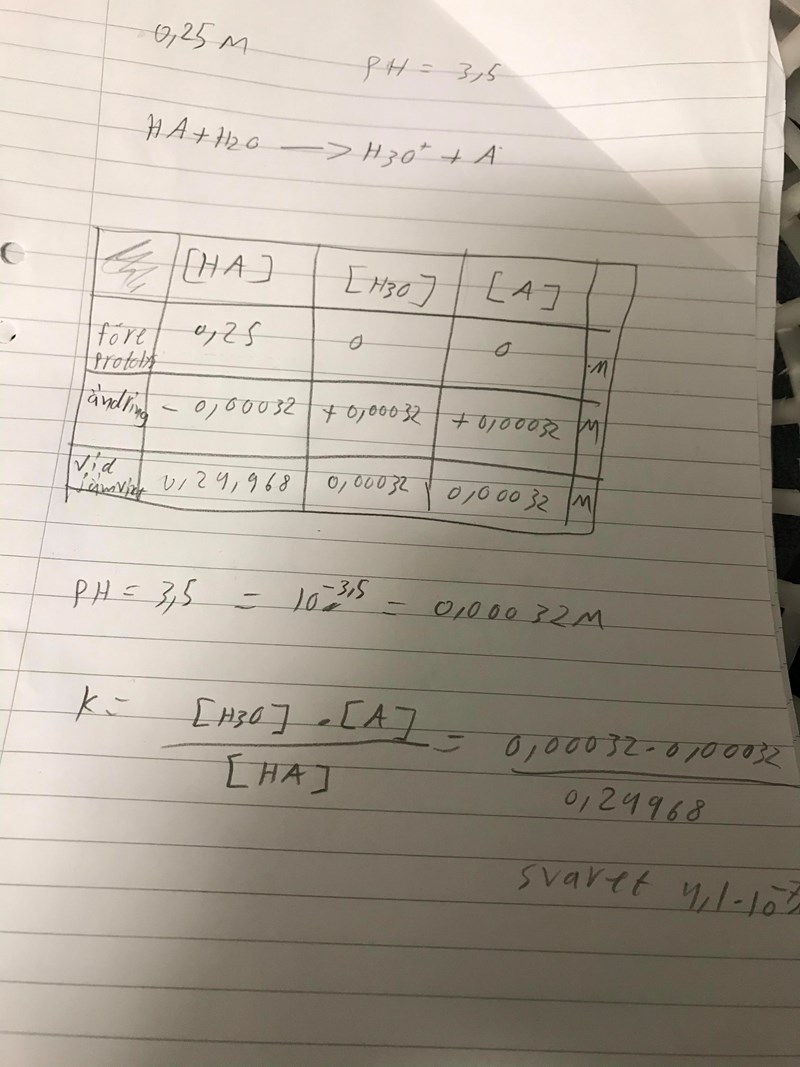 0,25 M
PH = 3,5
HA + H2O —> H3O+ + A-
[HA] [H3O] [A]
före protolys 0,25 0 0 M
ändring - 0,00032 + 0,00032 + 0,00032 M
vid jämvikt 0,24,968 0,00032 0,00032 M
PH = 3,5 = 10-3,5 = 0,00032 M
K = [H3O] · [A] / [HA] = 0,00032 · 0,00032 / 0,24968
svaret 4,1 · 10-7